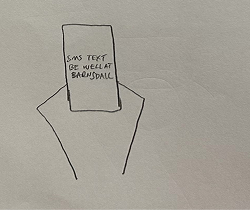 SMS TEXT
BE WELL AT
BARNSDALL